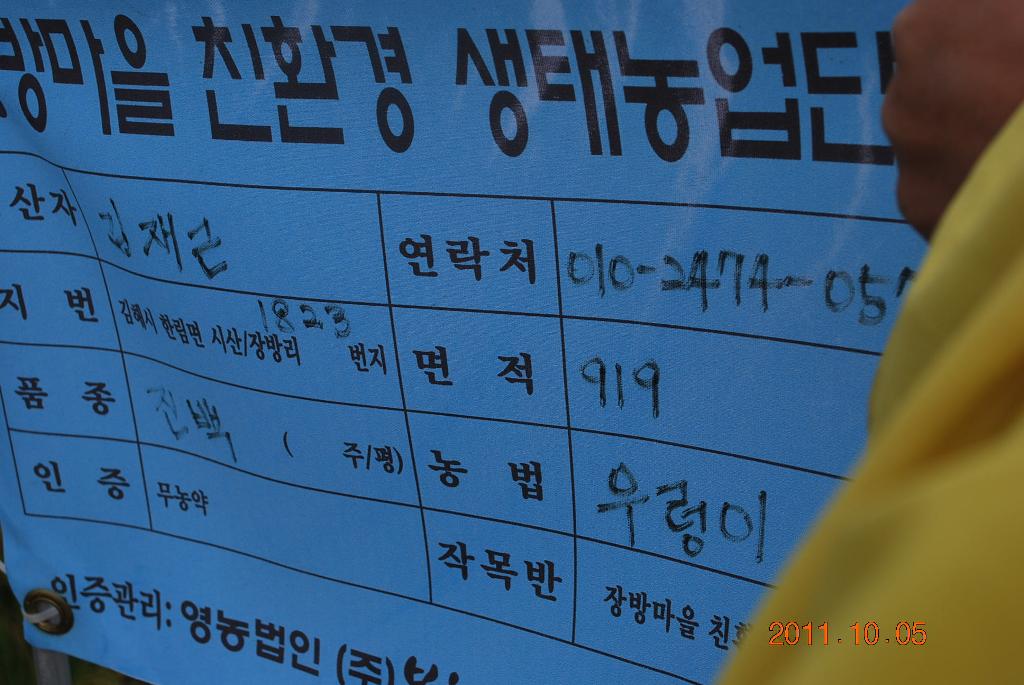 방마을 친환경 생태농업단
산자 김재근 연락처 010-2474-057
지 번 김해시 한림면 시산/장방리 1823 번지 면 적 919
품 종 진백 ( 주/평) 농 법 우렁이
인 증 무농약 작목반 장방마을 친환
인증관리: 영농법인 (주)
2011.10.05